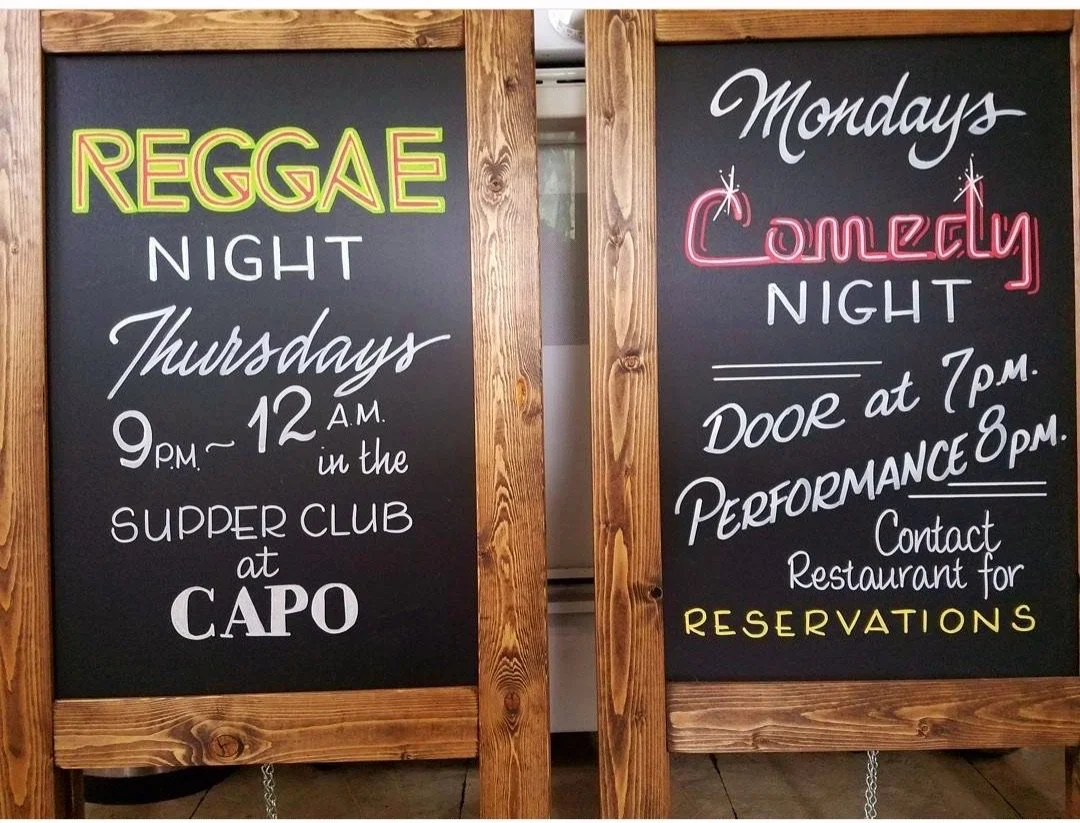 REGGAE
NIGHT
Thursdays
9P.M. ~ 12 A.M.
in the
SUPPER CLUB
at
CAPO
Mondays
Comedy
NIGHT
DOOR at 7p.m.
PERFORMANCE 8pm.
Contact
Restaurant for
RESERVATIONS